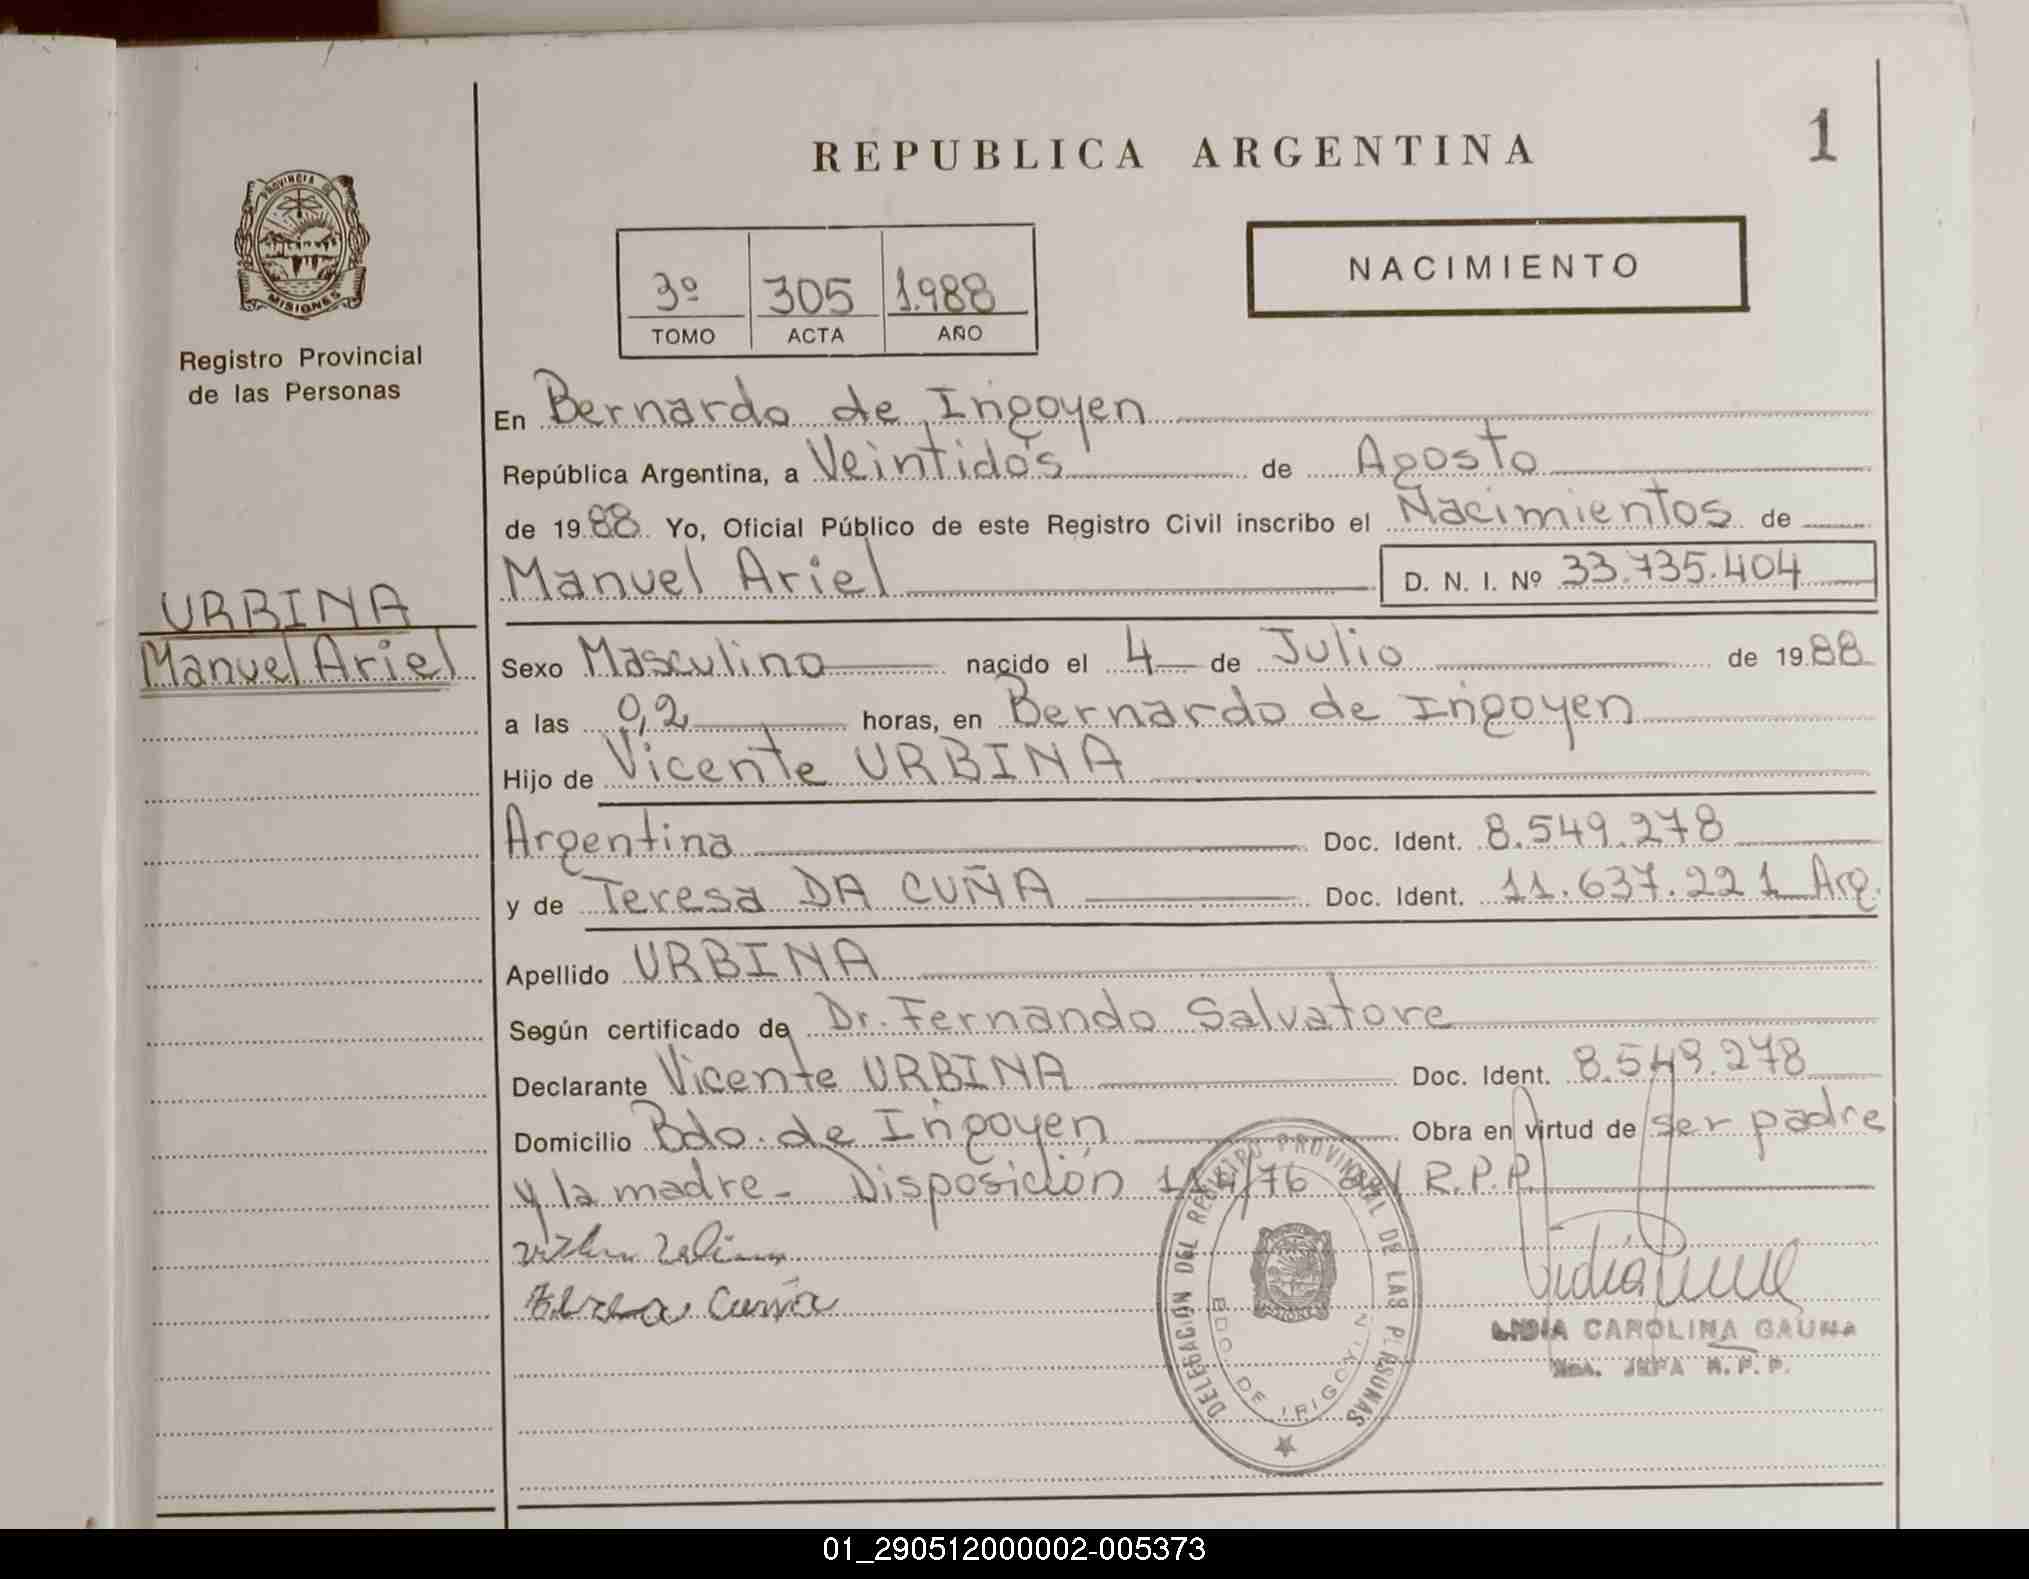 REPUBLICA ARGENTINA
1
PROVINCIA DE
MISIONES
Registro Provincial
de las Personas
3º 305 1.988
TOMO ACTA AÑO
NACIMIENTO
En Bernardo de Irigoyen
República Argentina, a Veintidós de Agosto
de 1988 Yo, Oficial Público de este Registro Civil inscribo el Nacimientos de
Manuel Ariel D. N. I. Nº 33.735.404
URBINA
Manuel Ariel
Sexo Masculino nacido el 4 de Julio de 1988
a las 0,2 horas, en Bernardo de Irigoyen
Hijo de Vicente URBINA
Argentina Doc. Ident. 8.549.278
y de Teresa DA CUÑA Doc. Ident. 11.637.221 Arg.
Apellido URBINA
Según certificado de Dr. Fernando Salvatore
Declarante Vicente URBINA Doc. Ident. 8.549.278
Domicilio Bdo. de Irigoyen Obra en virtud de ser padre
y la madre - Disposición 114/76 R.P.P.
Cunia
DELEGACIÓN DEL REGISTRO PROVINCIAL DE LAS PERSONAS
BDO. DE IRIGOYEN
LIDIA CAROLINA GAUNA
JEFA R.P.P.
01_290512000002-005373